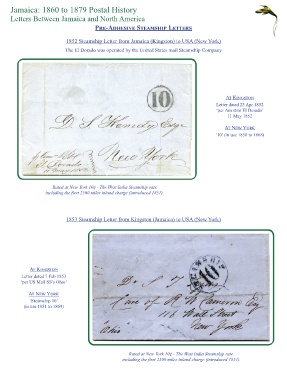 Jamaica: 1860 to 1879 Postal History
Letters Between Jamaica and North America
PRE-ADHESIVE STEAMSHIP LETTERS
1852 Steamship Letter from Jamaica (Kingston) to USA (New York)
The El Dorado was operated by the United States mail Steamship Company
10
D. S. Kennedy Esqr
New York
AT KINGSTON
Letter dated 23 Apr 1852
'per American El Dorado'
11 May 1852
AT NEW YORK
'10' (in use 1850 to 1868)
Rated at New York 10¢ - The West India Steamship rate
including the first 2500 miles inland charge (introduced 1851).
1853 Steamship Letter from Kingston (Jamaica) to USA (New York)
AT KINGSTON
Letter dated 7 Feb 1853
'per US Mail SS's Ohio'
AT NEW YORK
Steamship 10'
(in use 1851 to 1869)
STEAMSHIP
10
D. S.
Care of R W Cameron Esq
116 Wall Street
New York
Ohio
Rated at New York 10¢ - The West India Steamship rate
including the first 2500 miles inland charge (introduced 1851).